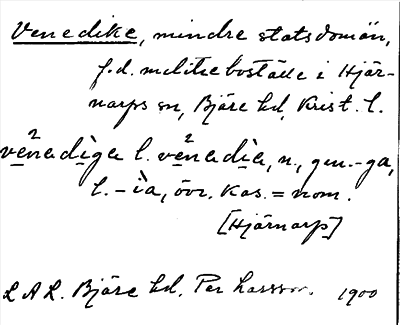 Venedike, mindre statsdomän,
f.d. militieboställe i Hjär-
narps sn, Bjäre hd, Krist. l.
vènadìga l. vènadìa, n., gen. -ga,
l. -ìa, övr. kas. = nom.
[Hjärnarp]
L A L. Bjäre hd. Per Larsson. 1900